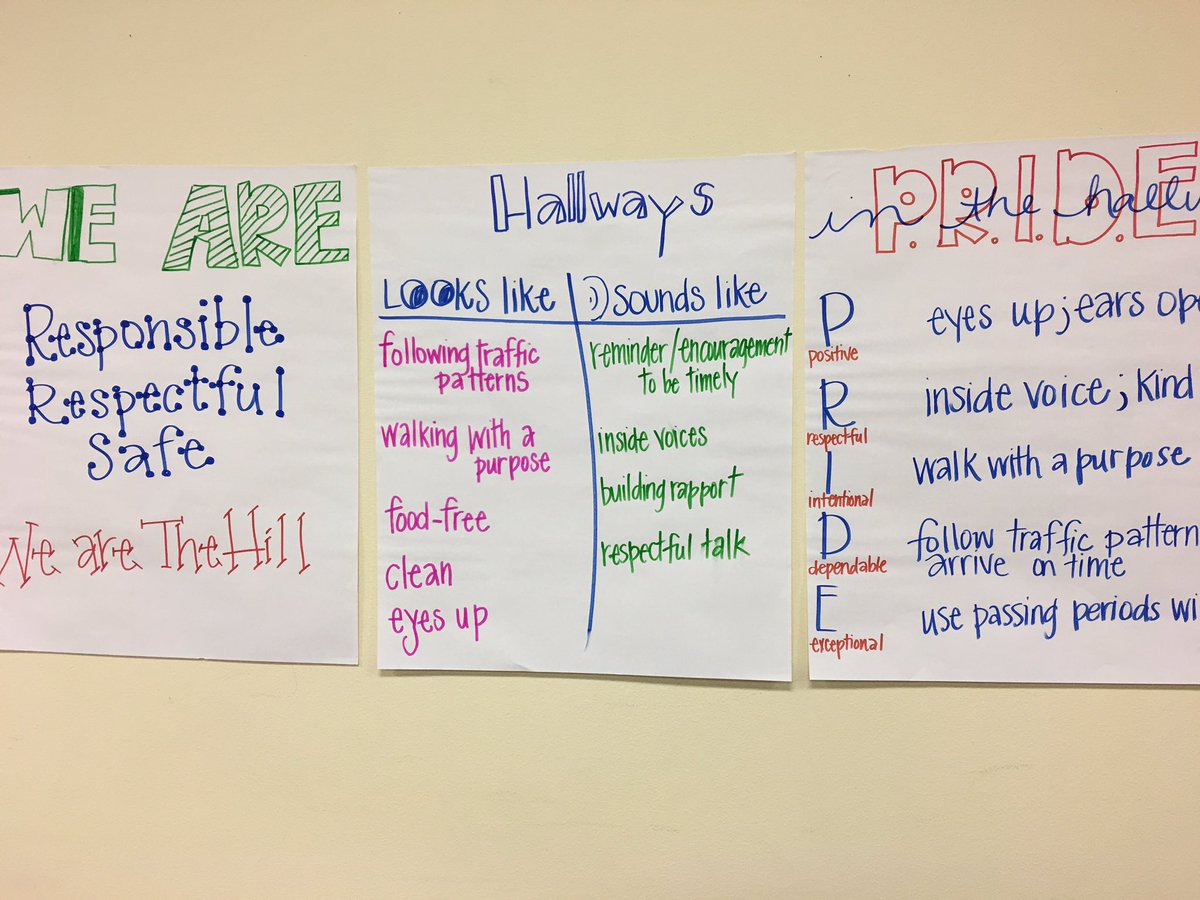 WE ARE
Responsible
Respectful
Safe
We are The Hill
Hallways
LOOKS like
sounds like
following traffic
patterns
walking with a
purpose
food-free
clean
eyes up
reminder/encouragement
to be timely
inside voices
building rapport
respectful talk
P.R.I.D.E
in the
P
positive
eyes up; ears
R
respectful
inside voice; kind
I
intentional
walk with a purpose
D
dependable
follow traffic pattern
arrive on time
E
exceptional
use passing periods